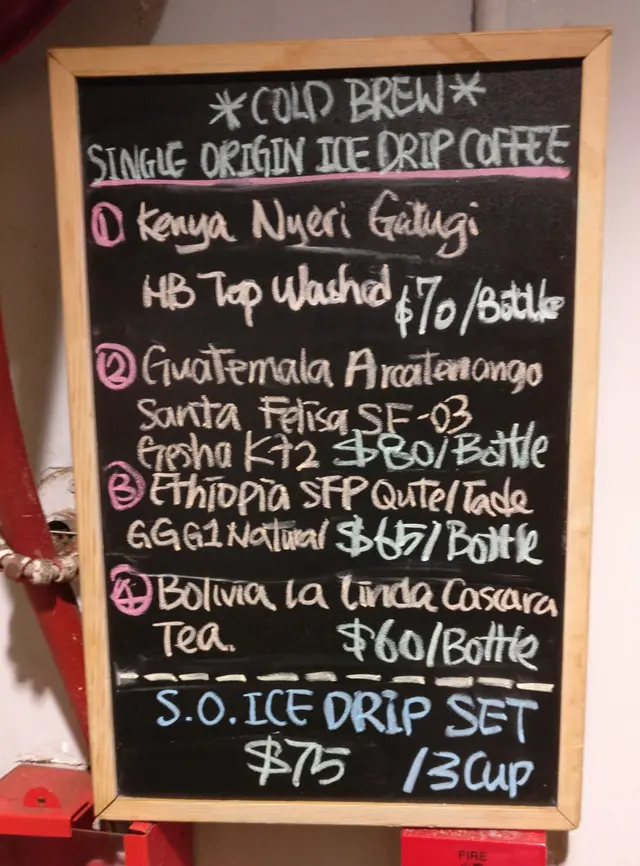 *COLD BREW*
SINGLE ORIGIN ICE DRIP COFFEE
① Kenya Nyeri Gatugi
HB Top Washed $70/Bottle
② Guatemala Arcatenango
Santa Felisa SF-03
Gesha K72 $80/Bottle
③ Ethiopia SFP Qute/Tade
GGG1 Natural $65/Bottle
④ Bolivia La Linda Cascara
Tea. $60/Bottle
S.O. ICE DRIP SET
$75 /3Cup
FIRE